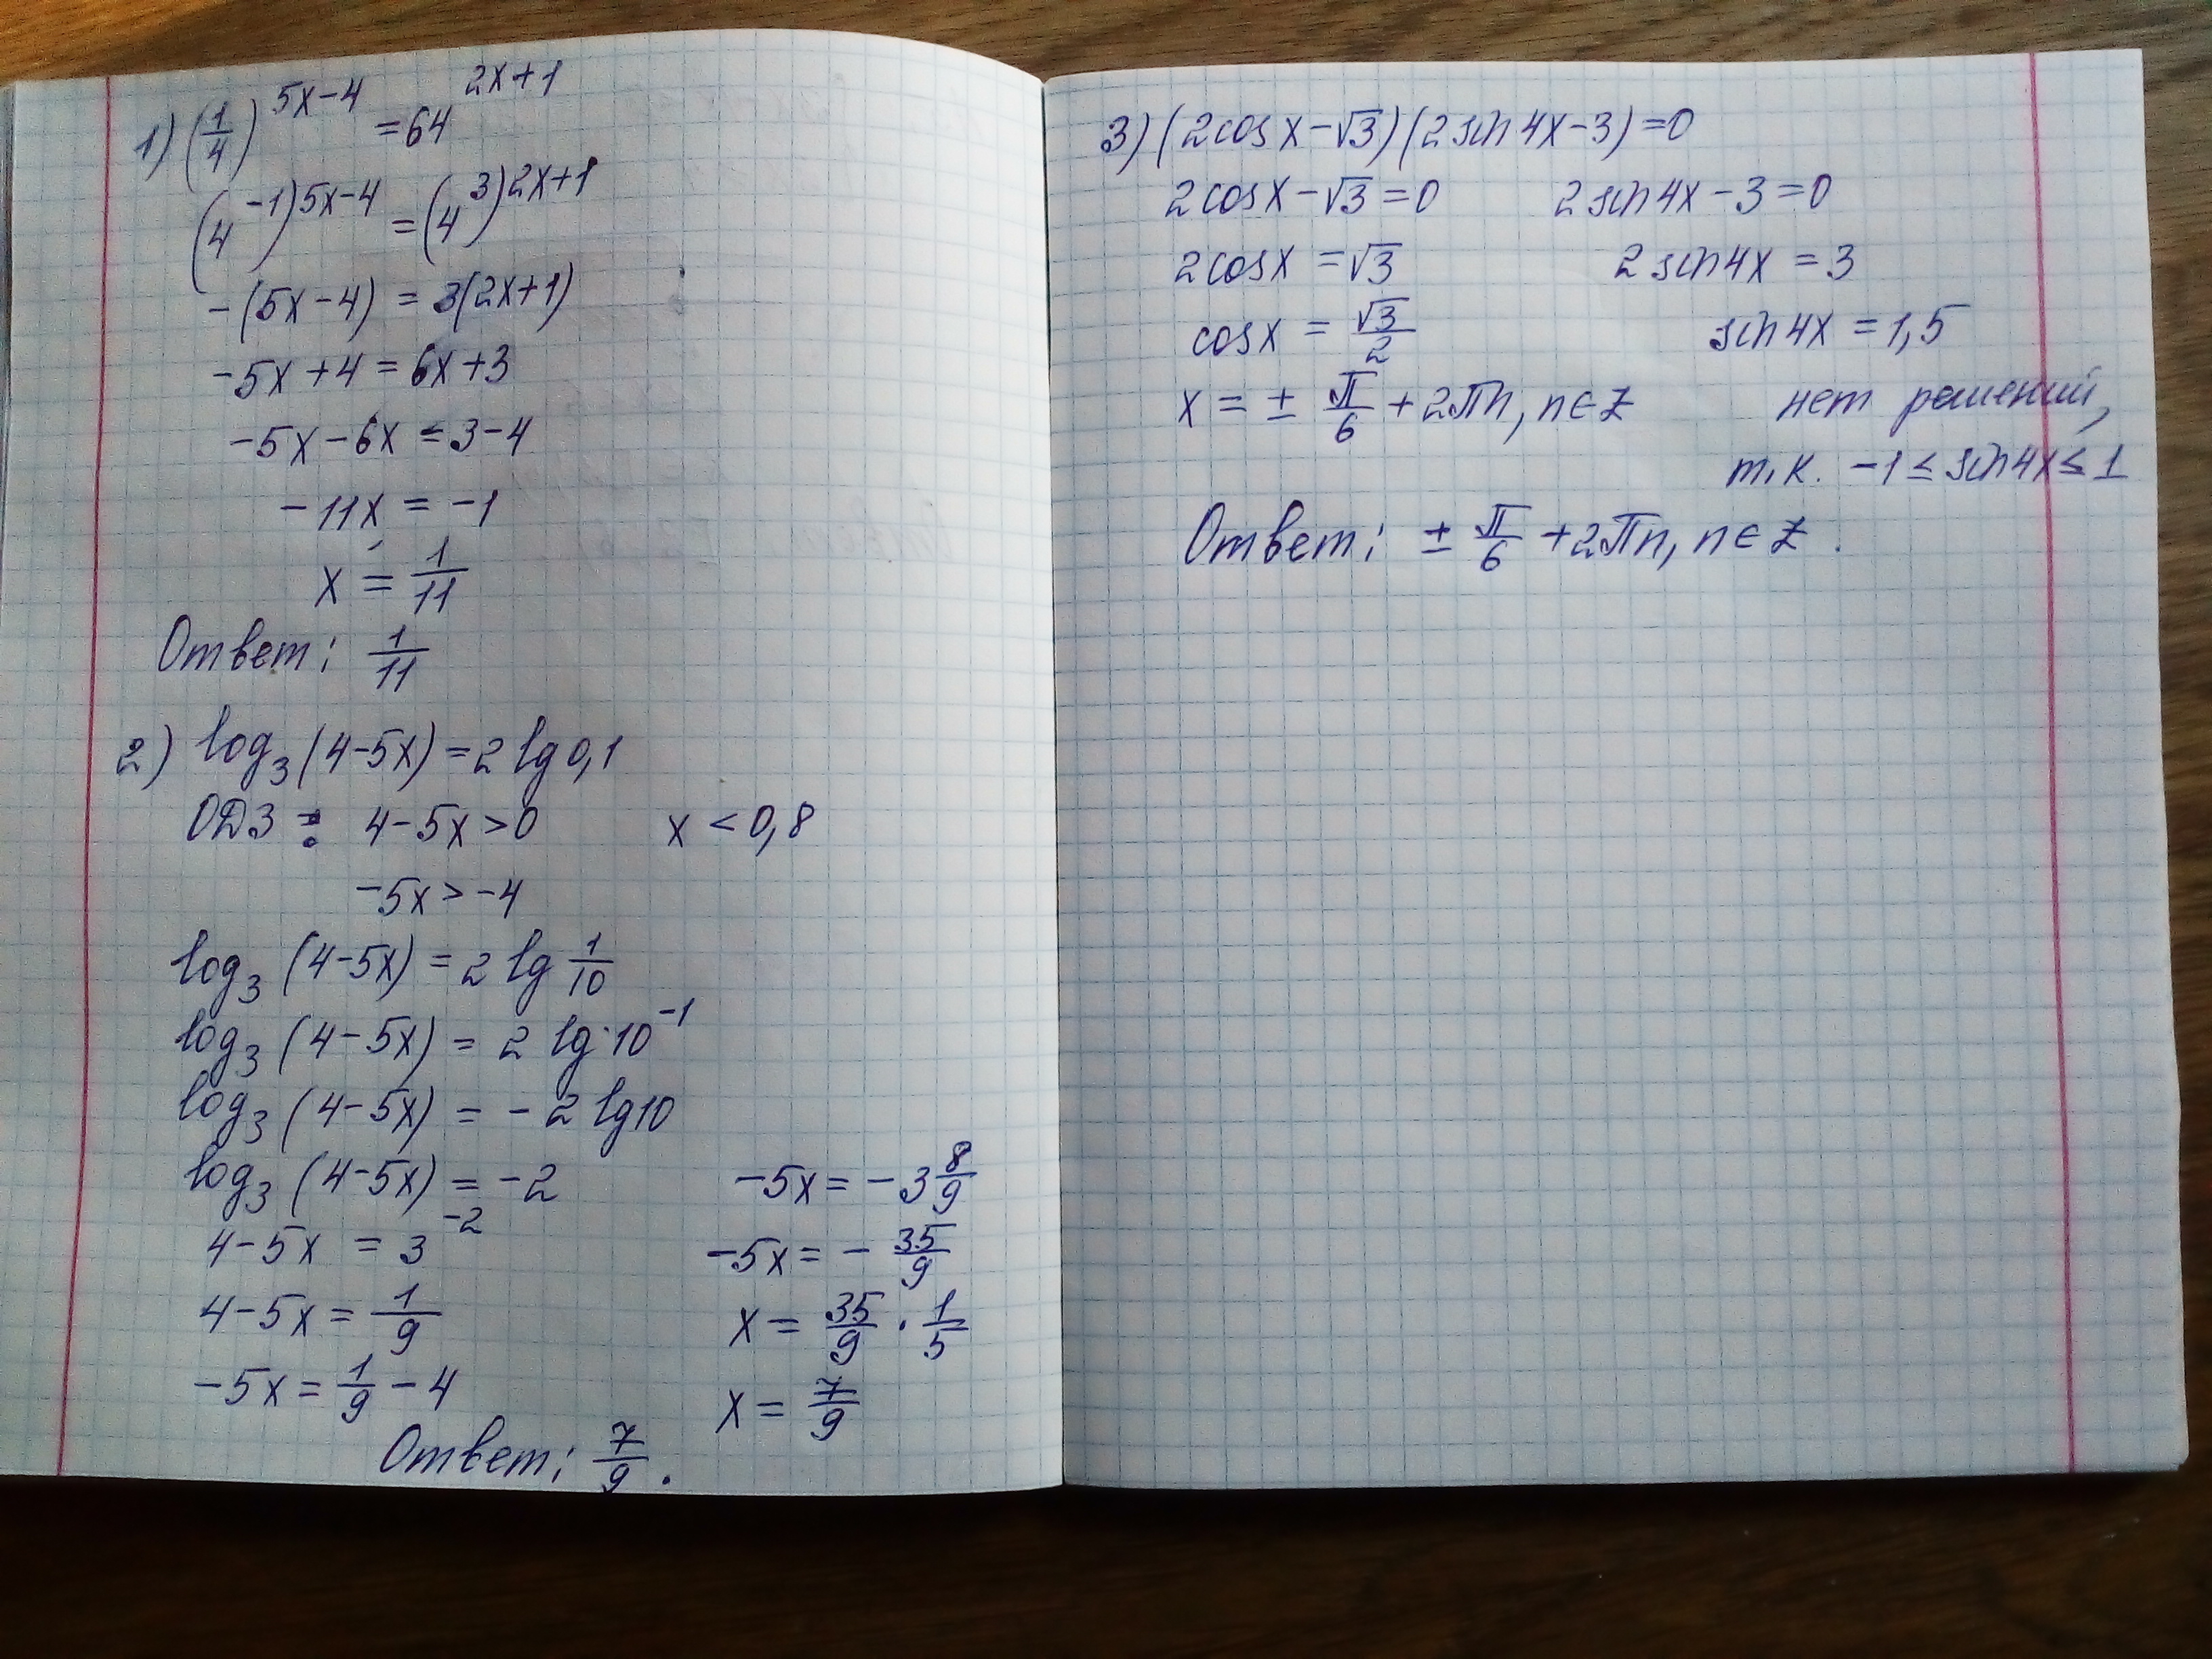 1) (1/4)^(5x-4) = 64^(2x+1)
(4^(-1))^(5x-4) = (4^3)^(2x+1)
-(5x-4) = 3(2x+1)
-5x+4 = 6x+3
-5x-6x = 3-4
-11x = -1
x = 1/11
Ответ: 1/11
2) log₃(4-5x) = 2 lg 0,1
ОДЗ: 4-5x>0 x < 0,8
-5x > -4
log₃(4-5x) = 2 lg 1/10
log₃(4-5x) = 2 lg 10⁻¹
log₃(4-5x) = -2 lg 10
log₃(4-5x) = -2
4-5x = 3⁻²
4-5x = 1/9
-5x = 1/9 - 4
-5x = -3 8/9
-5x = - 35/9
x = 35/9 · 1/5
x = 7/9
Ответ: 7/9.
3) (2cosx-√3)(2sin4x-3)=0
2cosx-√3=0 2sin4x-3=0
2cosx = √3 2sin4x = 3
cosx = √3/2 sin4x = 1,5
x = ± π/6 + 2πn, n∈Z нет решений,
т.к. -1 ≤ sin4x ≤ 1
Ответ: ± π/6 + 2πn, n∈Z.